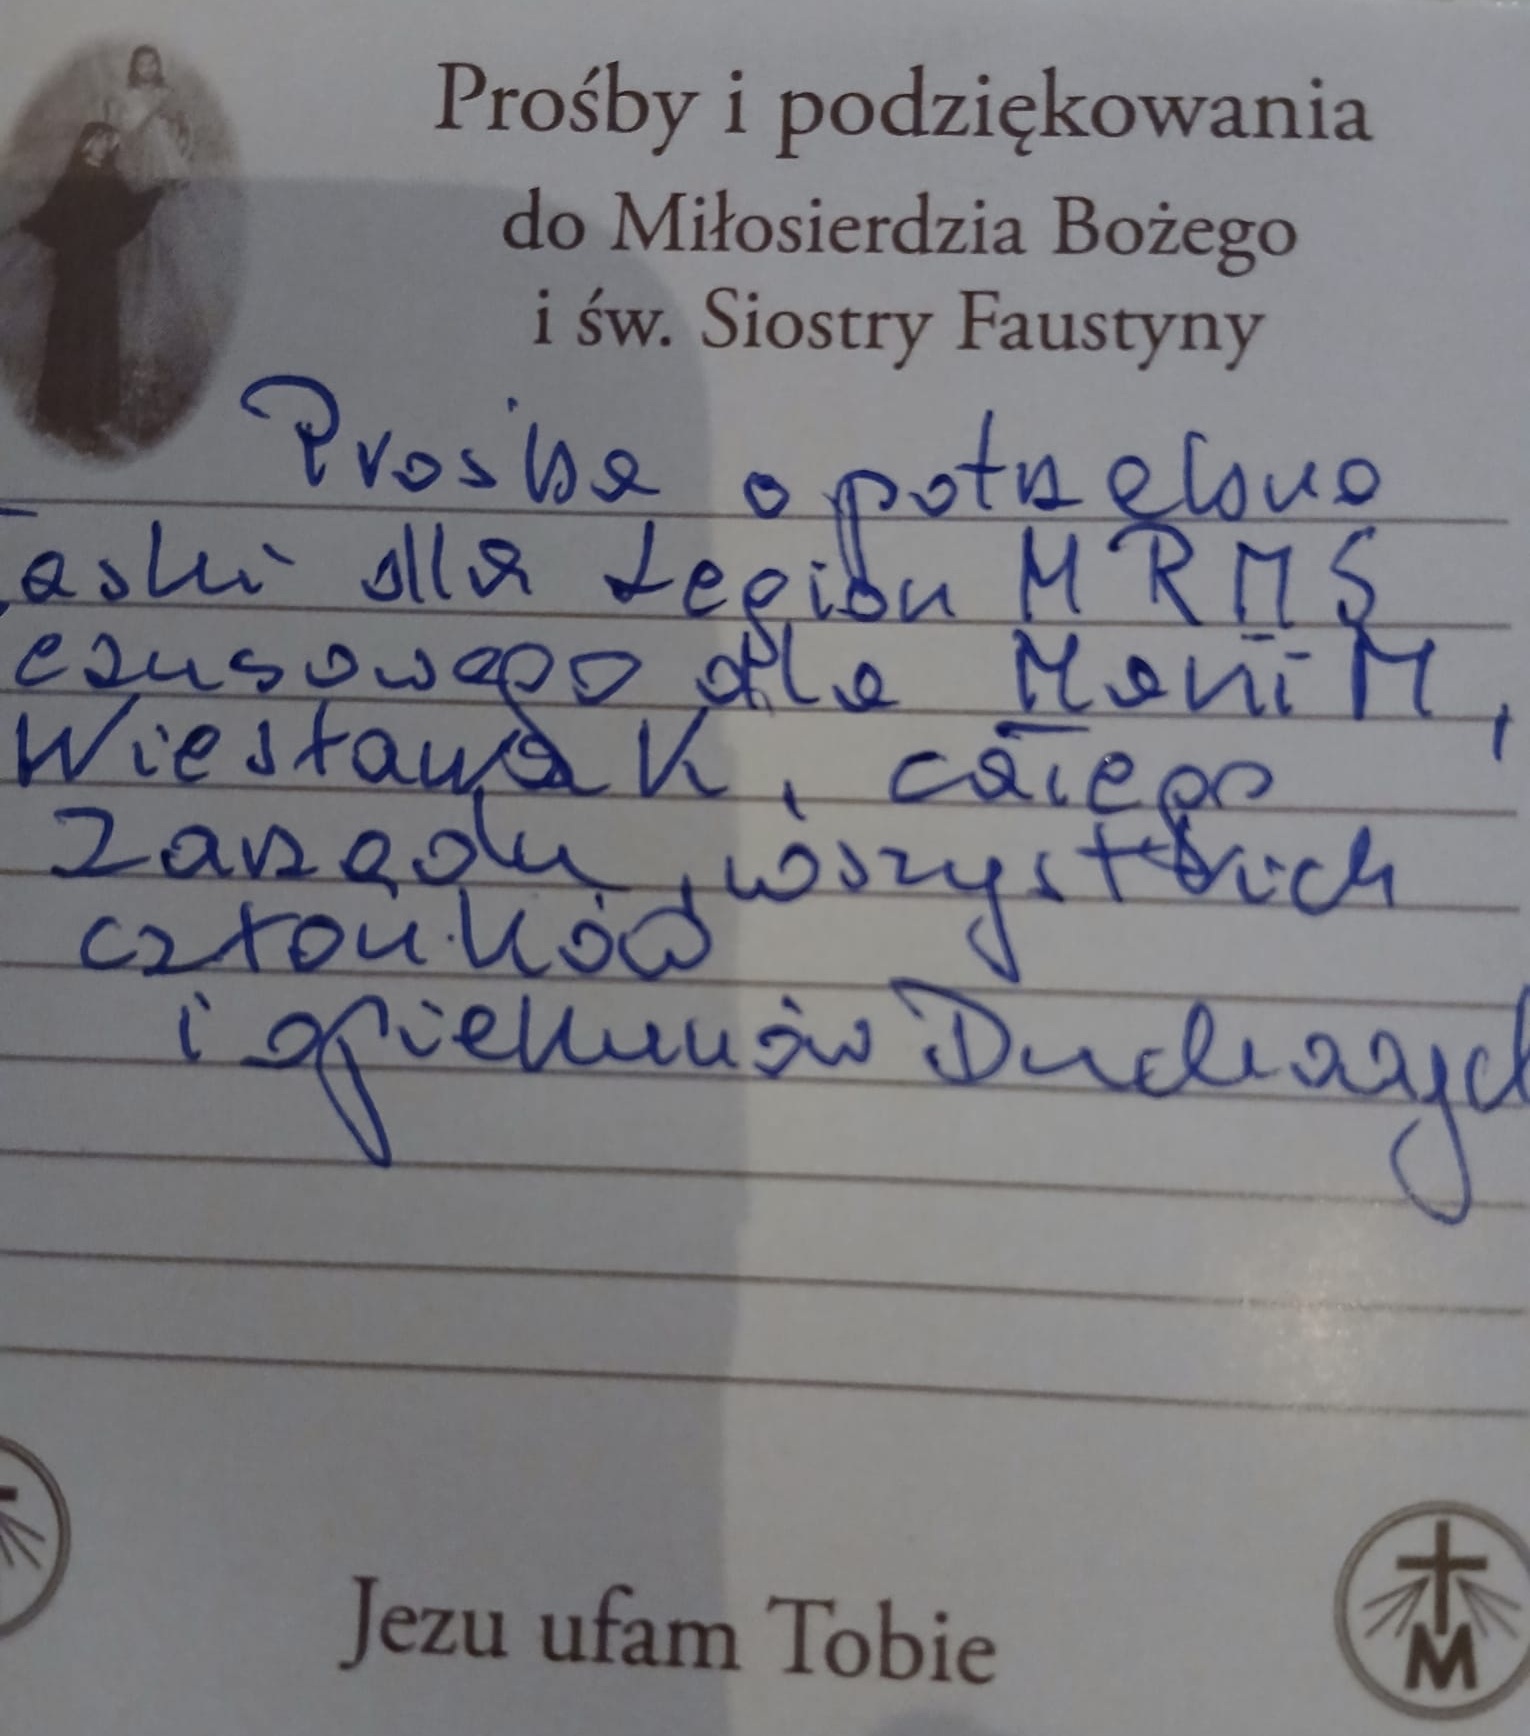 Prośby i podziękowania
do Miłosierdzia Bożego
i św. Siostry Faustyny
Prośba o potrzebne
Łaski dla Legionu MRMŚ
czysowego dla Marii M,
Wiesława K, całego
Zarządu, wszystkich
członków
i opiekunów Duchowych
Jezu ufam Tobie
M